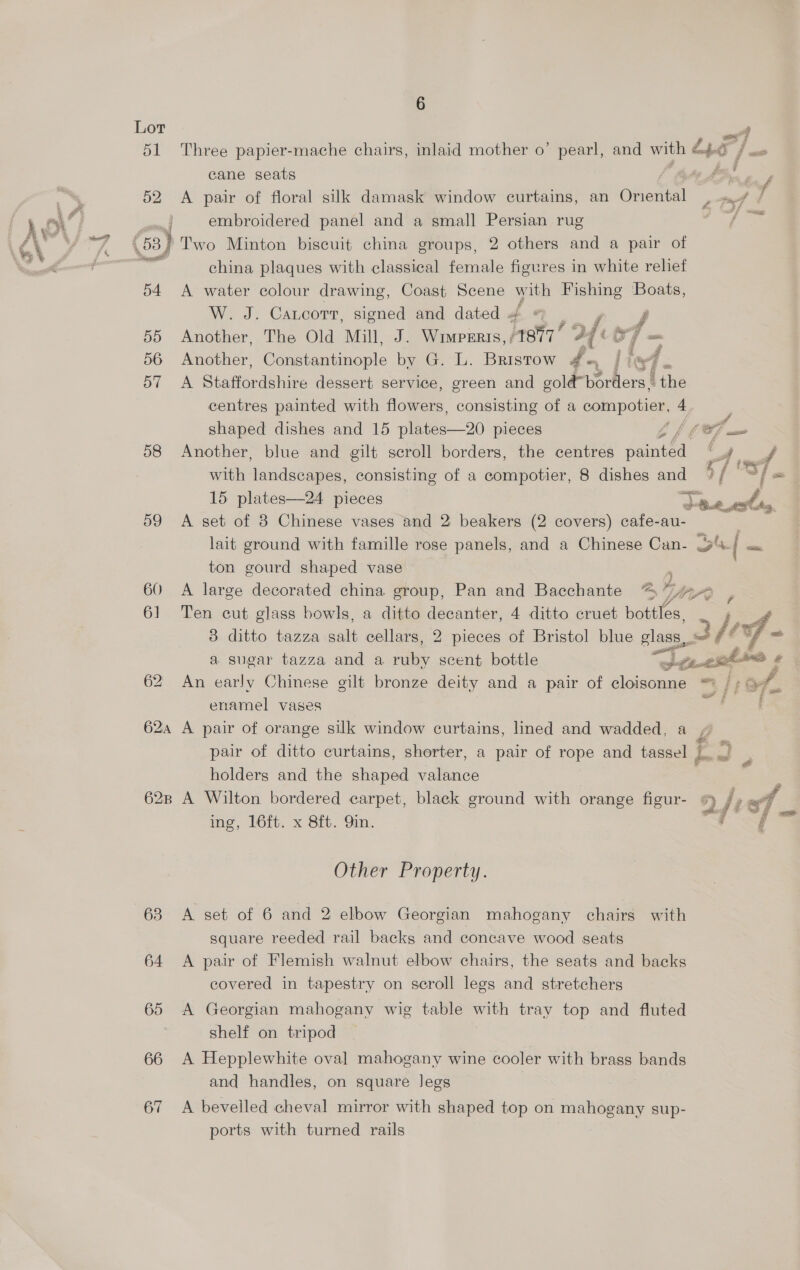 6
Lot
51 Three papier-mache chairs, inlaid mother o' pearl, and with
cane seats
52 A pair of floral silk damask window curtains, an Oriental
embroidered panel and a small Persian rug
53 Two Minton biscuit china groups, 2 others and a pair of
china plaques with classical female figures in white relief
54 A water colour drawing, Coast Scene with Fishing Boats,
W. J. CALCOTT, signed and dated
55 Another, The Old Mill, J. WIMPERIS, 1877
56 Another, Constantinople by G. L. BRISTOW
57 A Staffordshire dessert service, green and gold borders, the
centres painted with flowers, consisting of a compotier, 4
shaped dishes and 15 plates—20 pieces
58 Another, blue and gilt scroll borders, the centres painted
with landscapes, consisting of a compotier, 8 dishes and
15 plates—24 pieces
59 A set of 3 Chinese vases and 2 beakers (2 covers) cafe-au-
lait ground with famille rose panels, and a Chinese Can-
ton gourd shaped vase
60 A large decorated china group, Pan and Bacchante
61 Ten cut glass bowls, a ditto decanter, 4 ditto cruet bottles,
3 ditto tazza salt cellars, 2 pieces of Bristol blue glass,
a sugar tazza and a ruby scent bottle
62 An early Chinese gilt bronze deity and a pair of cloisonne
enamel vases
62A A pair of orange silk window curtains, lined and wadded, a
pair of ditto curtains, shorter, a pair of rope and tassel
holders and the shaped valance
62B A Wilton bordered carpet, black ground with orange figur-
ing, 16ft. x 8ft. 9in.
Other Property.
63 A set of 6 and 2 elbow Georgian mahogany chairs with
square reeded rail backs and concave wood seats
64 A pair of Flemish walnut elbow chairs, the seats and backs
covered in tapestry on scroll legs and stretchers
65 A Georgian mahogany wig table with tray top and fluted
shelf on tripod
66 A Hepplewhite oval mahogany wine cooler with brass bands
and handles, on square legs
67 A bevelled cheval mirror with shaped top on mahogany sup-
ports with turned rails